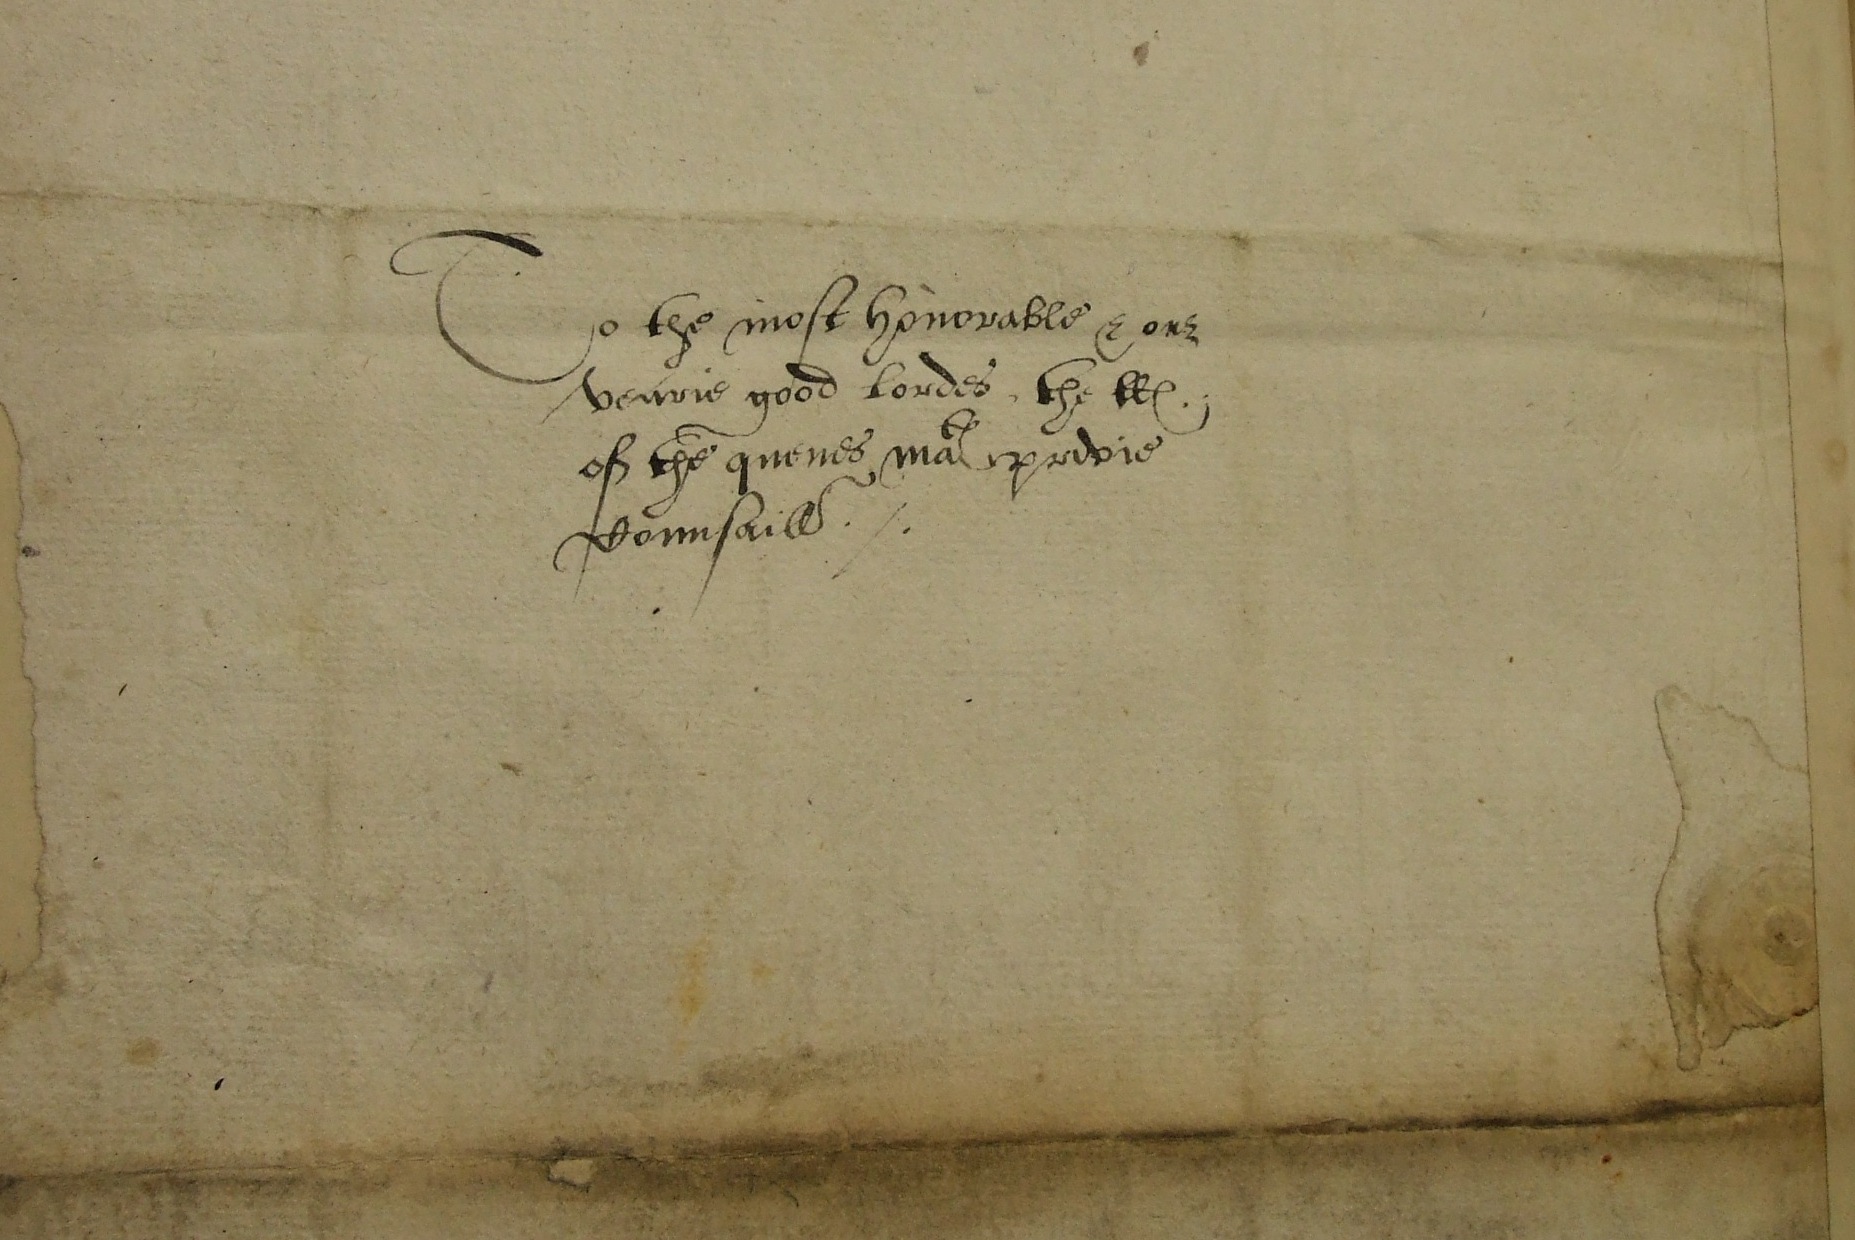 To the most honorable & our
vearie good Lordes, the ll.
of the quenes ma^tes privie
Counsaill ./.